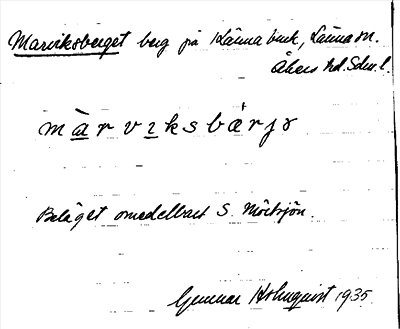 Marviksberget berg på Länna bruk, Länna sn.
Åkers hd. Sdm. l.
màrvıksbǽrjɤ
Beläget omedelbart S. Mörtsjön.
Gunnar Holmquist 1935